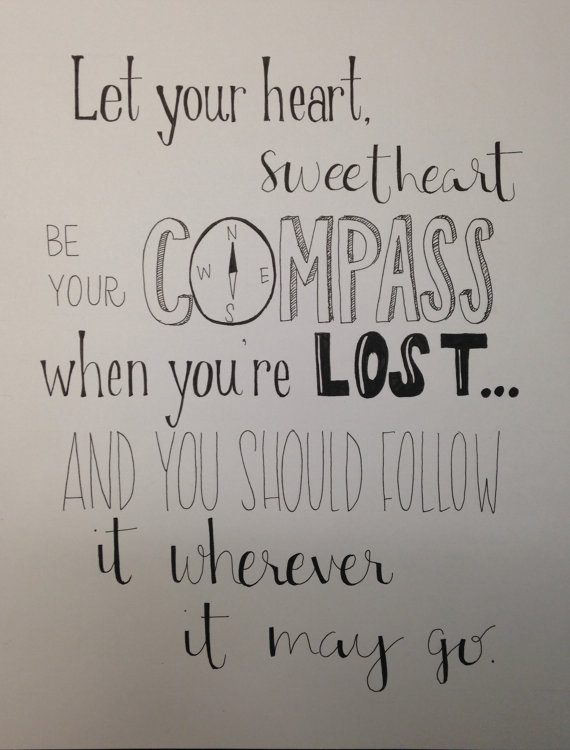 Let your heart,
sweetheart
BE
YOUR COMPASS
N
W E
S
when you're LOST...
AND YOU SHOULD FOLLOW
it wherever
it may go.